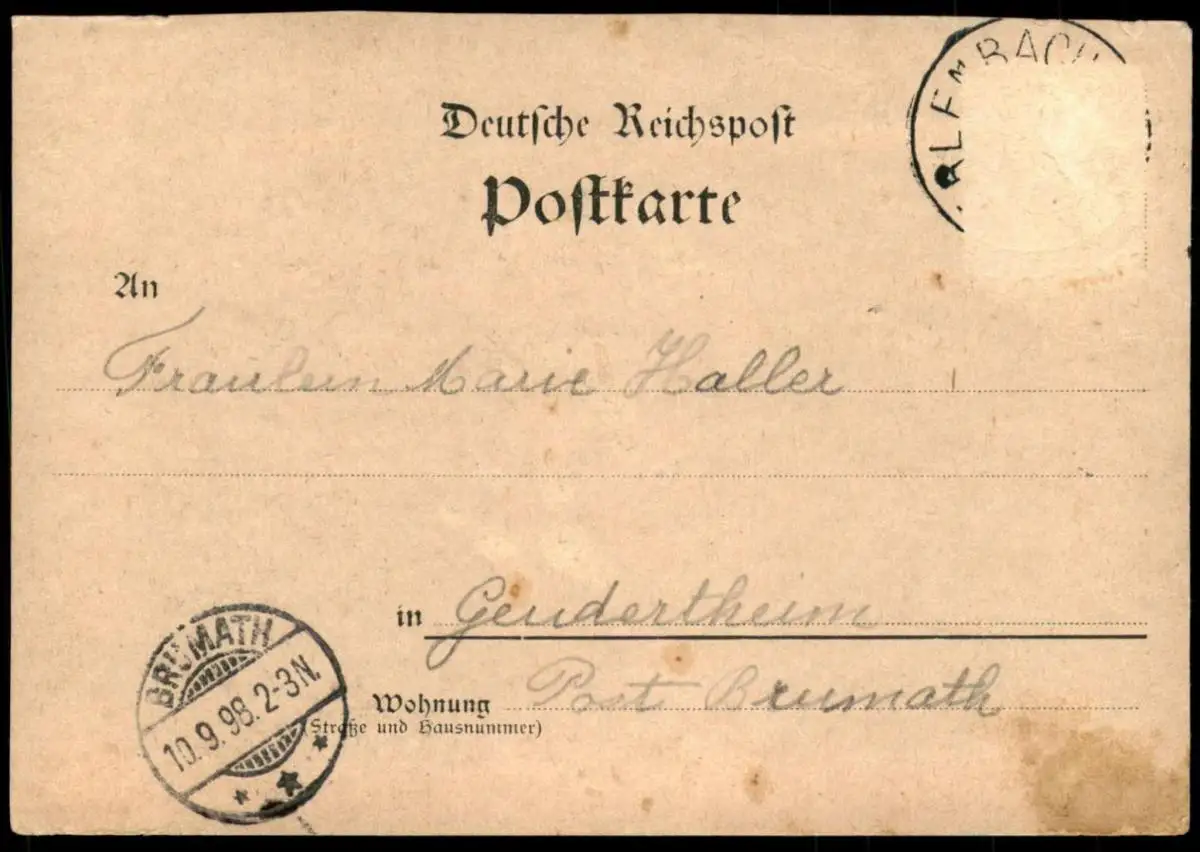 Deutsche Reichspost
Postkarte
An
Fräulein Marie Haller
in Geudertheim
Wohnung Post Brumath
(Straße und Hausnummer)
BRUMATH
10.9.98. 2-3N.